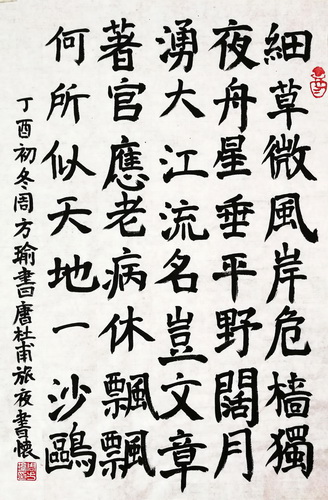 細草微風岸危檣獨
夜舟星垂平野闊月
湧大江流名豈文章
著官應老病休飄飄
何所似天地一沙鷗
丁酉初冬周方瑜書唐杜甫旅夜書懷